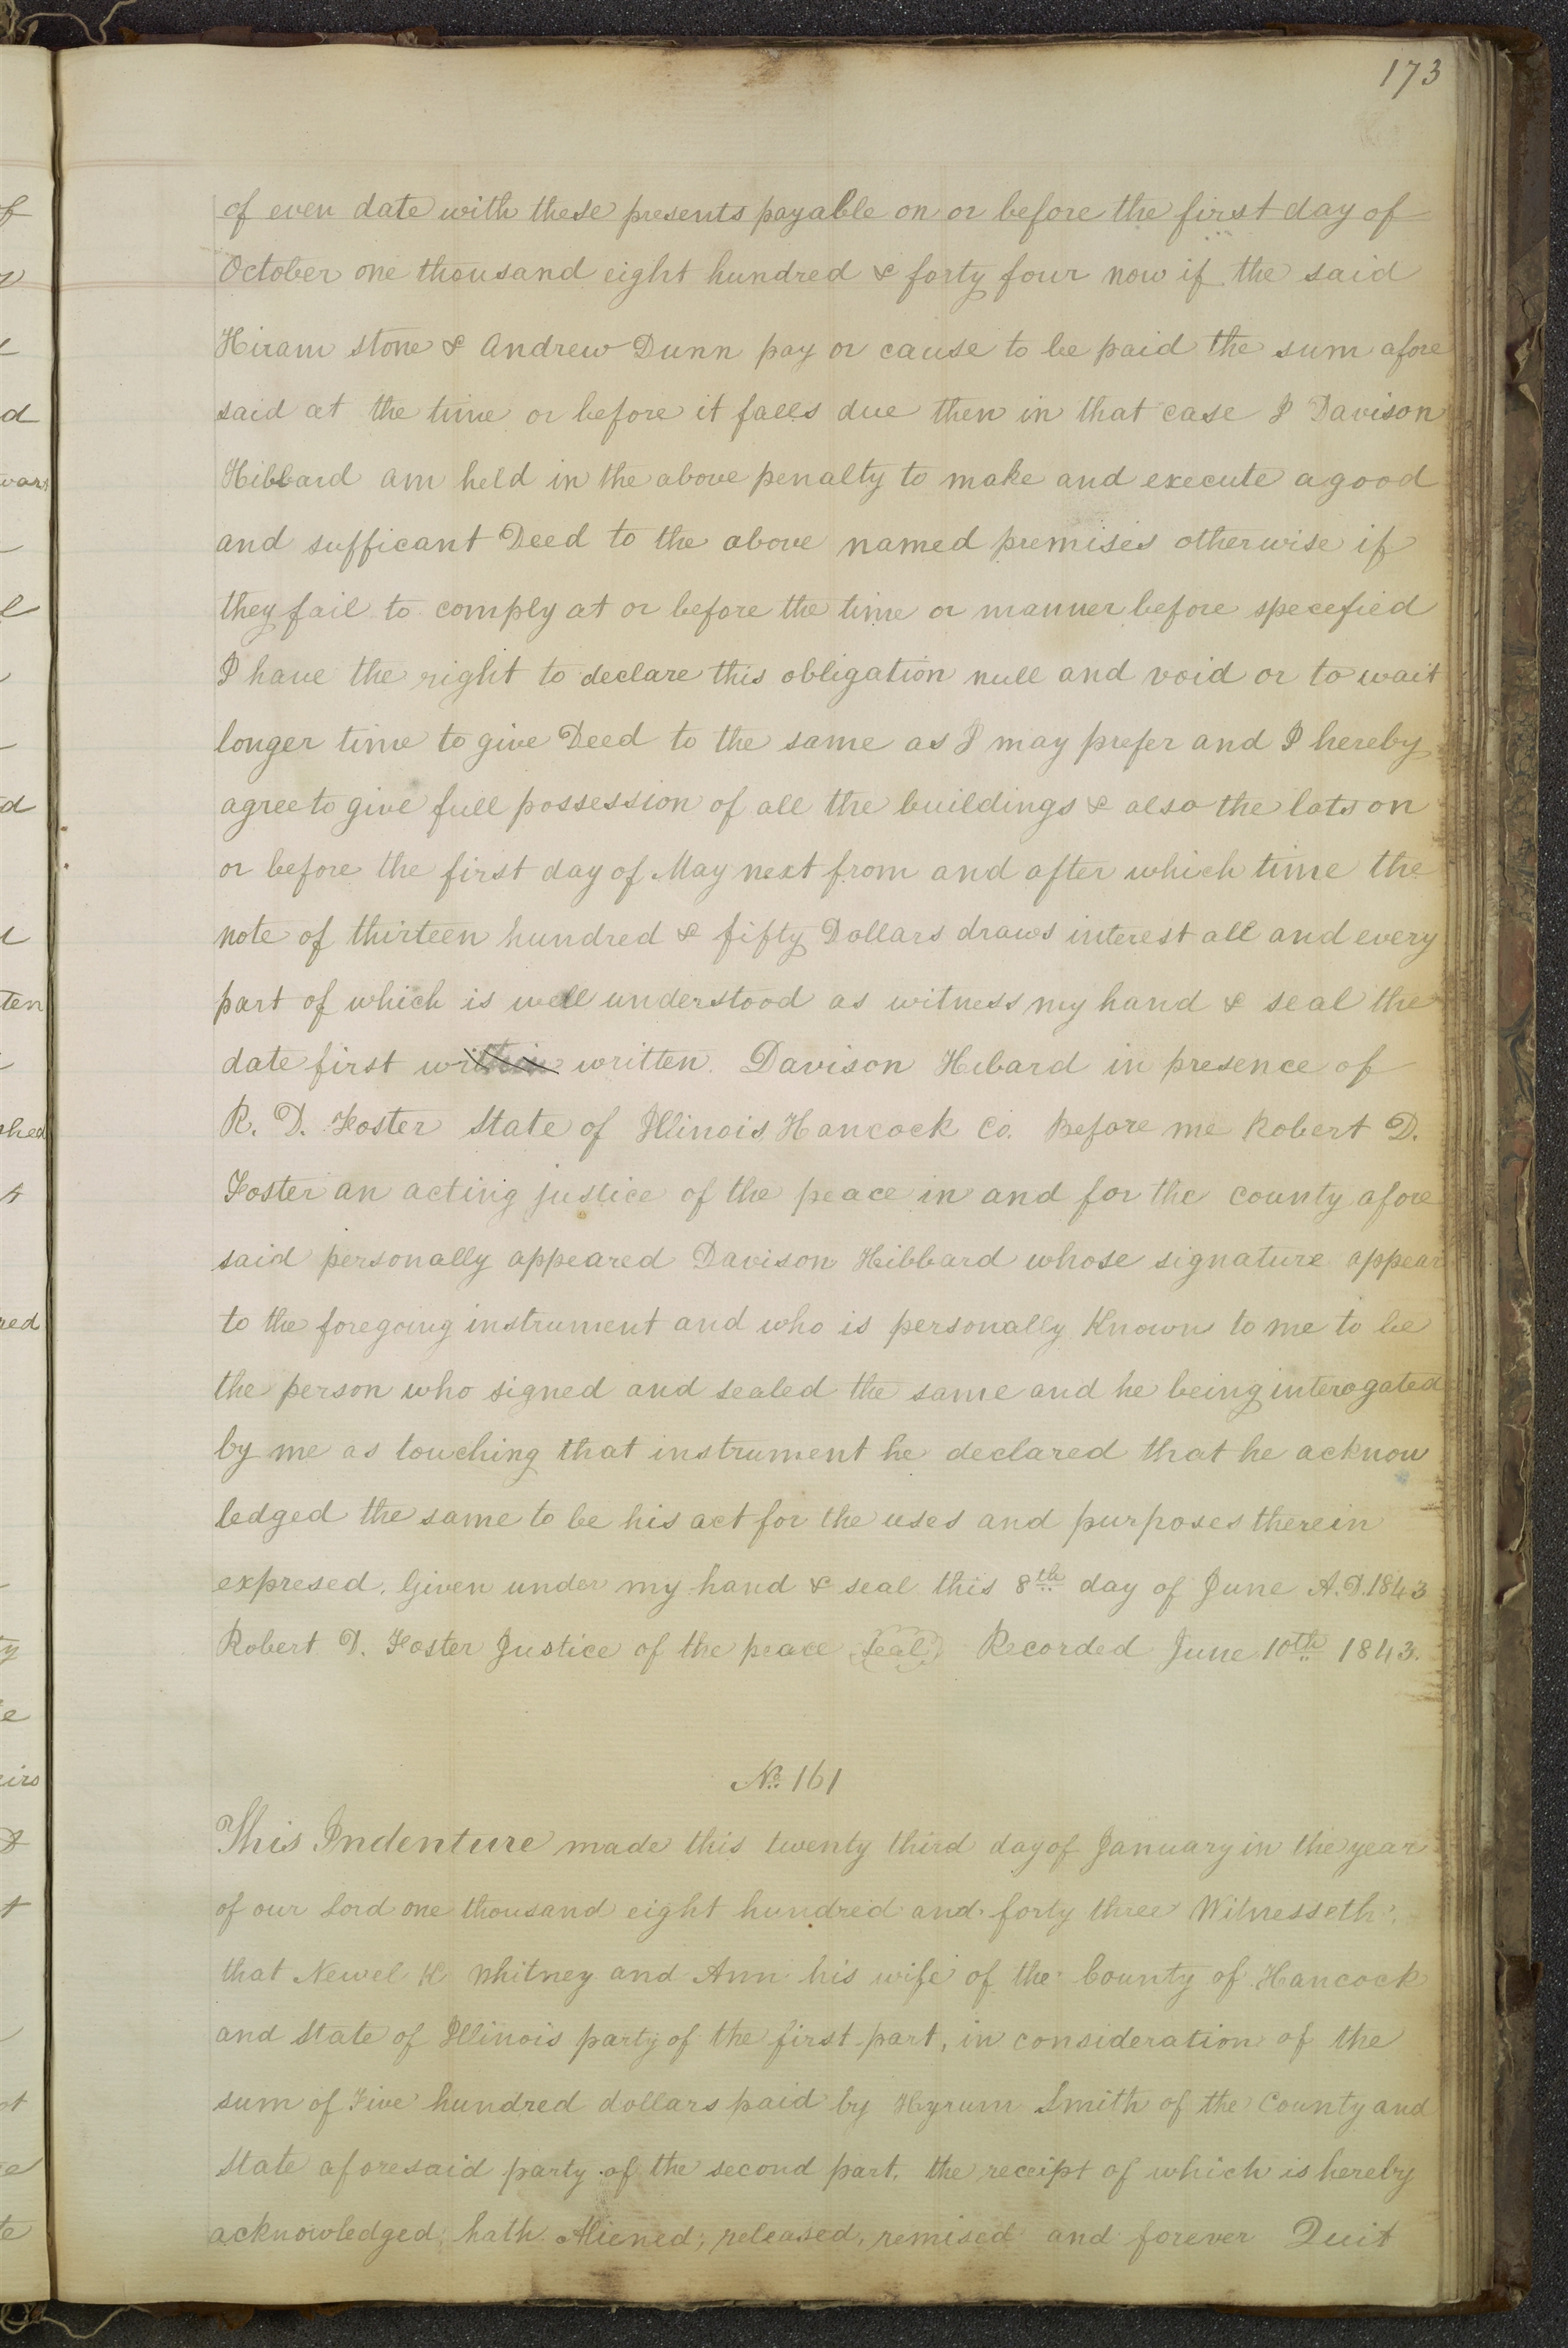 173
of even date with these presents payable on or before the first day of
October one thousand eight hundred & forty four now if the said
Hiram Stone & Andrew Dunn pay or cause to be paid the sum afore
said at the time or before it falls due then in that case I Davison
Hibbard am held in the above penalty to make and execute a good
and sufficant Deed to the above named premises otherwise if
they fail to comply at or before the time or manner before specefied
I have the right to declare this obligation null and void or to wait
longer time to give Deed to the same as I may prefer and I hereby
agree to give full possession of all the buildings & also the lots on
or before the first day of May next from and after which time the
note of thirteen hundred & fifty Dollars draws interest all and every
part of which is well understood as witness my hand & seal the
date first written. Davison Hibard in presence of
R. D. Foster State of Illinois Hancock Co. Before me Robert D.
Foster an acting justice of the peace in and for the county afore
said personally appeared Davison Hibbard whose signature appear
to the foregoing instrument and who is personally Known to me to be
the person who signed and sealed the same and he being interogated
by me as touching that instrument he declared that he acknow
ledged the same to be his act for the uses and purposes therein
expresed. Given under my hand & seal this 8th day of June A.D. 1843
Robert D. Foster Justice of the peace Seal Recorded June 10th 1843.
No. 161
This Indenture made this twenty third day of January in the year
of our Lord one thousand eight hundred and forty three Witnesseth,
that Newel K Whitney and Ann his wife of the County of Hancock
and State of Illinois party of the first part, in consideration of the
sum of Five hundred dollars paid by Hyrum Smith of the County and
State aforesaid party of the second part, the receipt of which is hereby
acknowledged, hath Aliened, released, remised and forever Quit